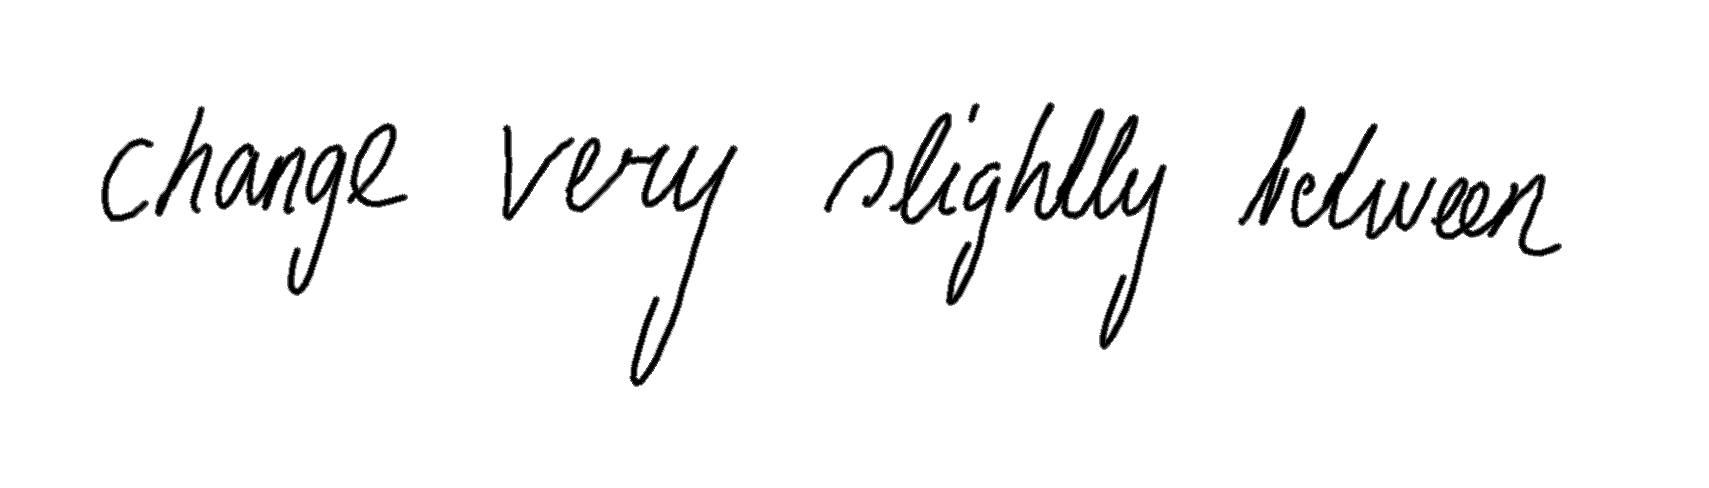 change very slightly between